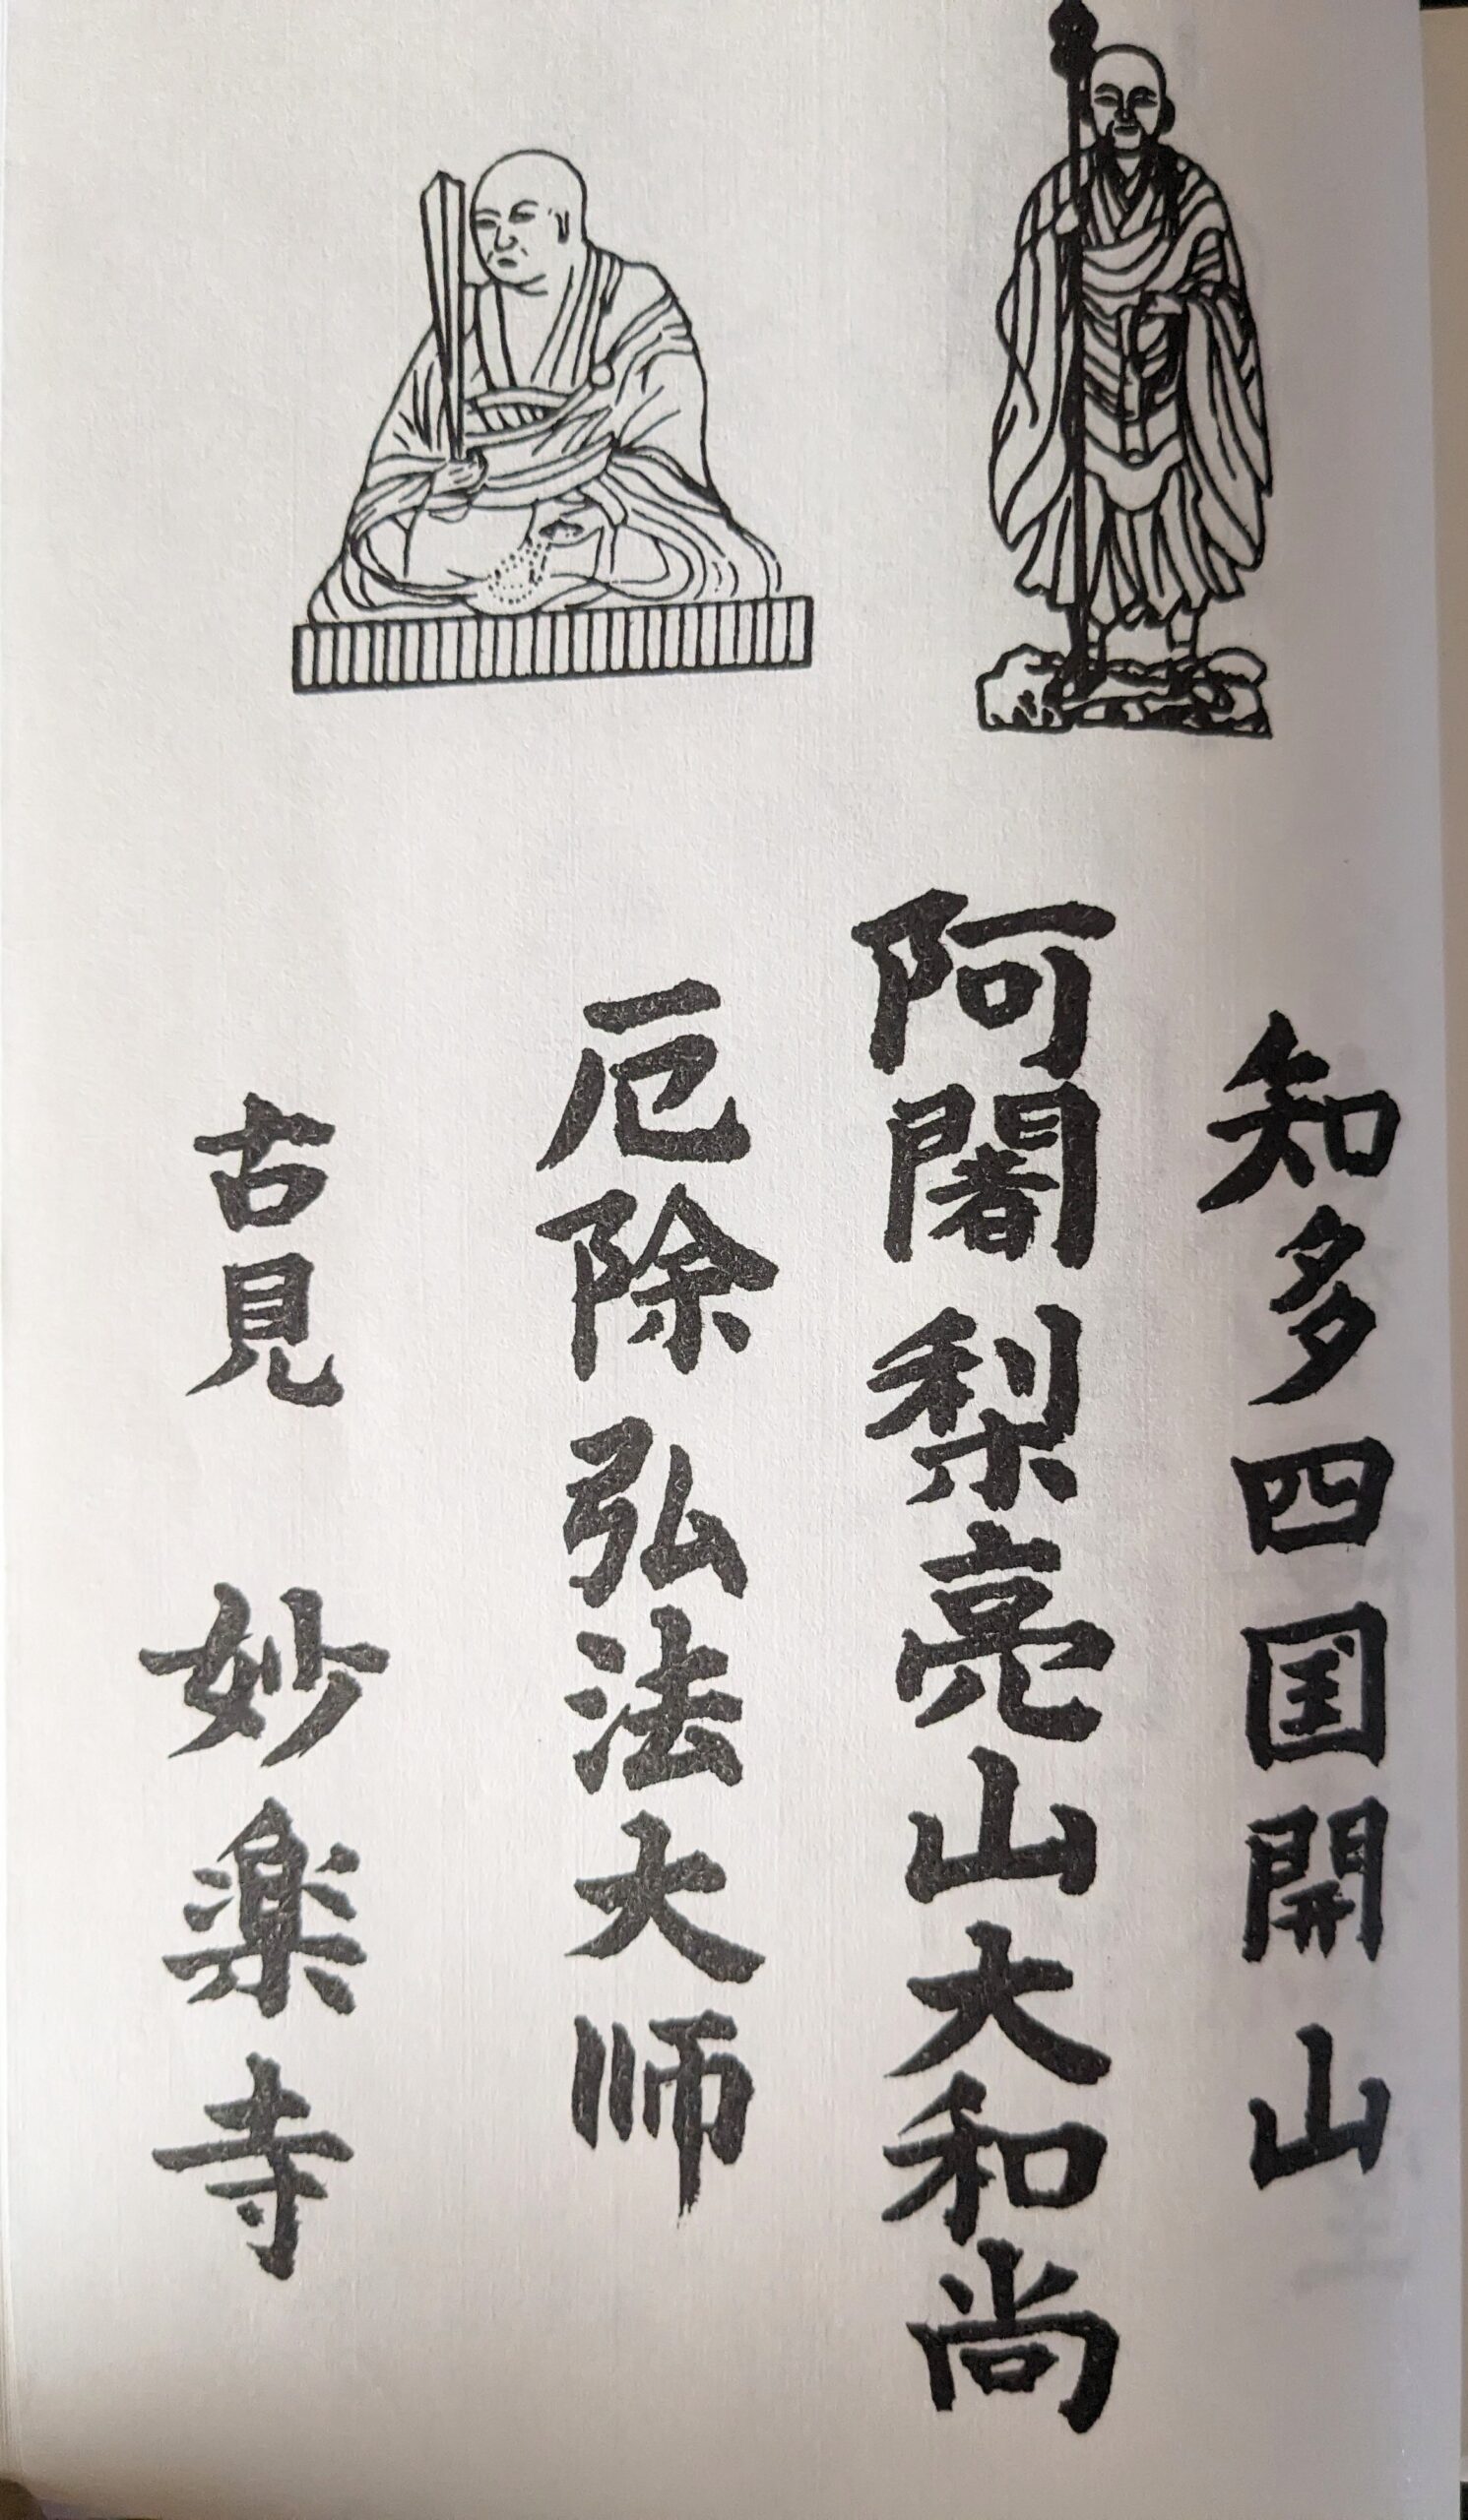 知多四国開山
阿闍梨亮山大和尚
厄除弘法大师
古見 妙楽寺